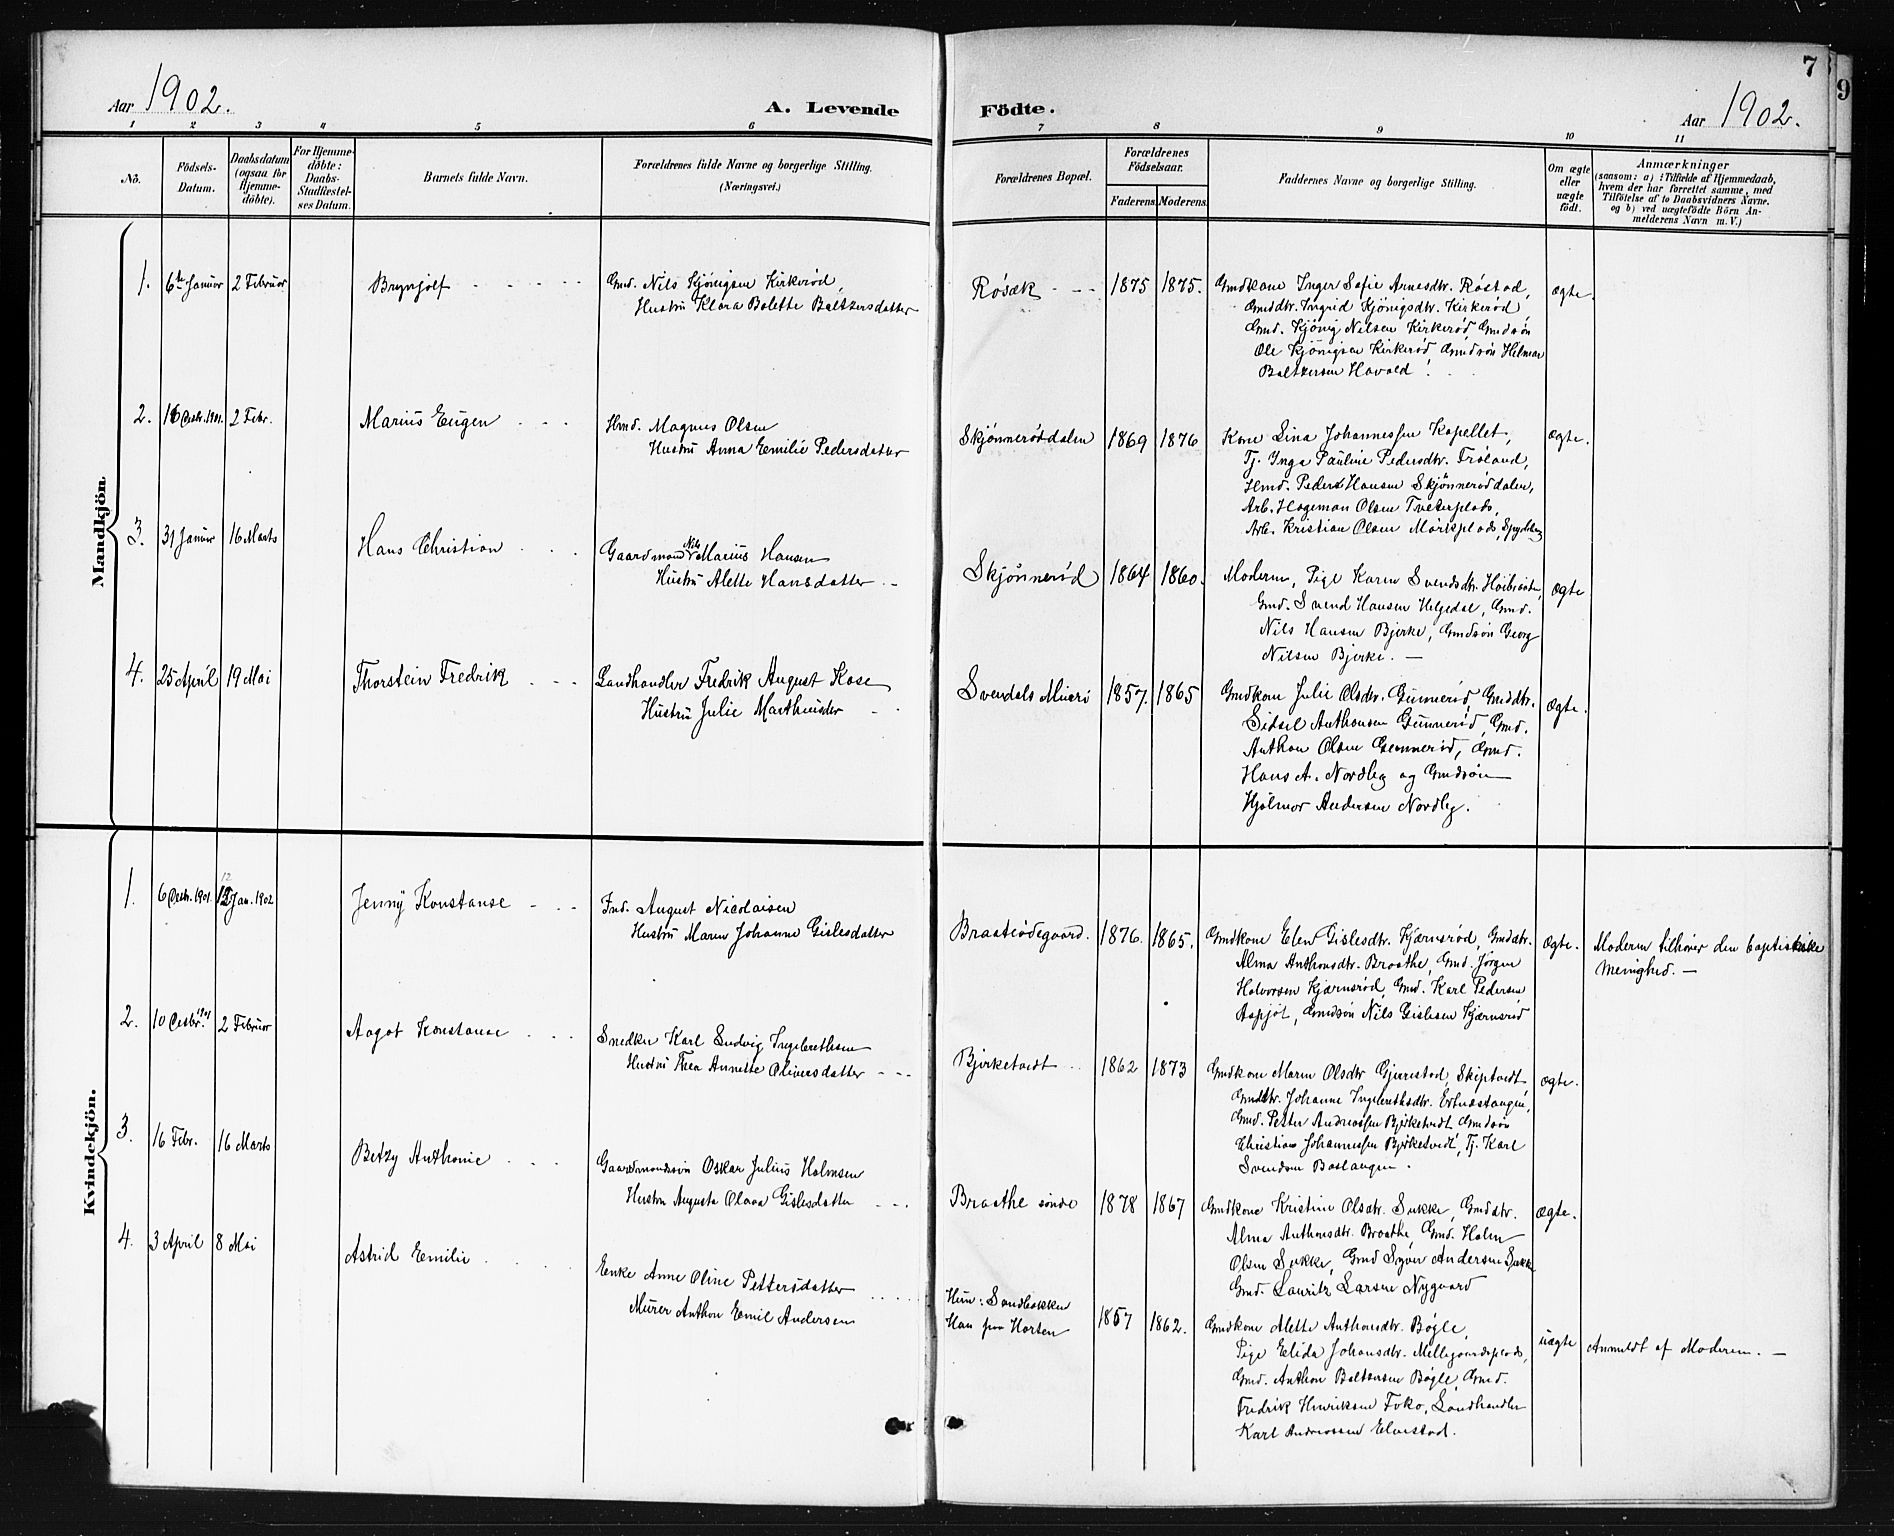 7
9
Aar 1902.
A. Levende
Födte.
Aar 1902.
1 2 3 4 5 6 7 8 9 10 11
No.
Födsels-
Datum.
Daabsdatum
(ogsaa for
Hjemme-
döbte).
For Hjemme-
döbte:
Daabs-
Stadfæstel-
ses Datum.
Barnets fulde Navn.
Forældrenes fulde Navne og borgerlige Stilling.
(Næringsvei.)
Forældrenes Bopæl.
Forældrenes
Födselsaar.
Faderens. Moderens.
Faddernes Navne og borgerlige Stilling.
Om ægte
eller
uægte
födt.
Anmærkninger
(saasom: a) i Tilfælde af Hjemmedaab,
hvem der har forrettet samme, med
Tilföielse af to Daabsvidners Navne.
og b) ved uægtefödte Börn An-
melderens Navn m. V.)
Mandkjön
1. 6te Januar 2 Februar Brynjolf
Gmd. Nils Kjönigsen Kirkeröd,
Hustru Klara Bolette Baltzersdatter
Rösæk 1875 1875.
Gmdkone Inger Sofie Arnesdtr. Röstad,
Gmddtr. Ingrid Kjönigsdtr. Kirkeröd,
Gmd. Kjönig Nilsen Kirkeröd Gmdsön
Ole Kjönigsen Kirkeröd, Gmdsön Hilmar
Baltzersen Havold.
Ægte.
2. 16 Decbr. 1901. 2 Febr. Marius Eugen
Hmd. Magnus Olsen
Hustru Anna Emilie Pedersdatter
Skjönneröddalen 1869 1876
Kone Lina Johannessen Kapellet,
Tj. Inga Pauline Pedersdtr. Fröland,
Hmd. Peder Hansen Skjönneröddalen,
Arb. Hageman Olsen Tveterplads,
Arb. Kristian Olsen Mörkplads, Spydeberg
Ægte.
3. 31 Januar 16 Marts Hans Christian
Gaardmand Nils Marius Hansen
Hustru Alette Hansdatter
Skjönneröd 1864 1860.
Moderen, Pige Karen Svendsdtr. Höibraaten,
Gmd. Svend Hansen Helgedal, Gmd.
Nils Hansen Bjerke, Gmdsön Georg
Nilsen Bjerke.
Ægte
4. 25 April 19 Mai Thorstein Fredrik
Landhandler Fredrik August Kase
Hustru Julie Marthinsdtr
Svendals Mineri 1857. 1865
Gmdkone Julie Olsdtr. Gunneröd, Gmddtr.
Sidsel Anthonsen Gunneröd, Gmd.
Anthon Olsen Gunneröd, Gmd.
Hans A. Nordby og Gmdsön
Hjalmar Andersen Nordby.
Ægte.
Kvindekjön.
1. 6 Decbr. 1901. 12 Jan. 1902 Jenny Konstanse
Ind. August Nicolaisen
Hustru Maren Johanne Gislesdatter
Braateödegaard. 1876. 1865.
Gmdkone Elen Gislesdtr. Kjærnsröd, Gmddtr.
Alma Anthonsdtr. Braathe, Gmd. Jörgen
Halvorsen Kjærnsröd, Gmd. Karl Pedersen
Aspjöt, Gmdsön Nils Gislesen Kjærnsröd
Ægte.
Moderen tilhörer den baptistiske
Menighed.
2. 10 Decbr. 1901 2 Februar Aagot Konstanse
Snedker Karl Ludvig Ingebrethsen
Hustru Thea Annette Oliversdatter
Bjirketvedt 1862 1873
Gmdkone Maren Olsdtr Gjærestad, Skiptvedt,
Gmddtr. Johanne Ingebrethsdtr. Ertnæstangen,
Gmd. Petter Andreassen Bjirketvedt Gmdsön
Christian Johannessen Bjirketvedt, Tj. Karl
Svendsen Baslangen.
Ægte.
3. 16 Febr. 16 Marts Betzy Anthonie
Gaardmandssön Oskar Julius Holmsen
Hustru Augusta Olava Gislesdatter
Braathe söndre 1878 1867
Gmdkone Kristine Olsdtr. Sukke, Gmddtr.
Alma Anthonsdtr. Braathe, Gmd. Holm
Olsen Sukke, Gmd Syver Andersen Sukke
Gmd. Lauritz Larsen Nygaard
Ægte.
4. 3 April 8 Mai Astrid Emilie
Enke Anne Oline Pettersdatter
Murer Anthon Emil Andersen
Hun: Sandbakken
Han fra Horten
1857 1862.
Gmdkone Alette Anthonsdtr. Bögle,
Pige Elida Johansdtr. Mellegaardsplads,
Gmd. Anthon Baltzersen Bögle, Gmd.
Fredrik Henriksen Foko, Landhandler
Karl Andreassen Elvestad.
uægte
Anmeldt af Moderen.